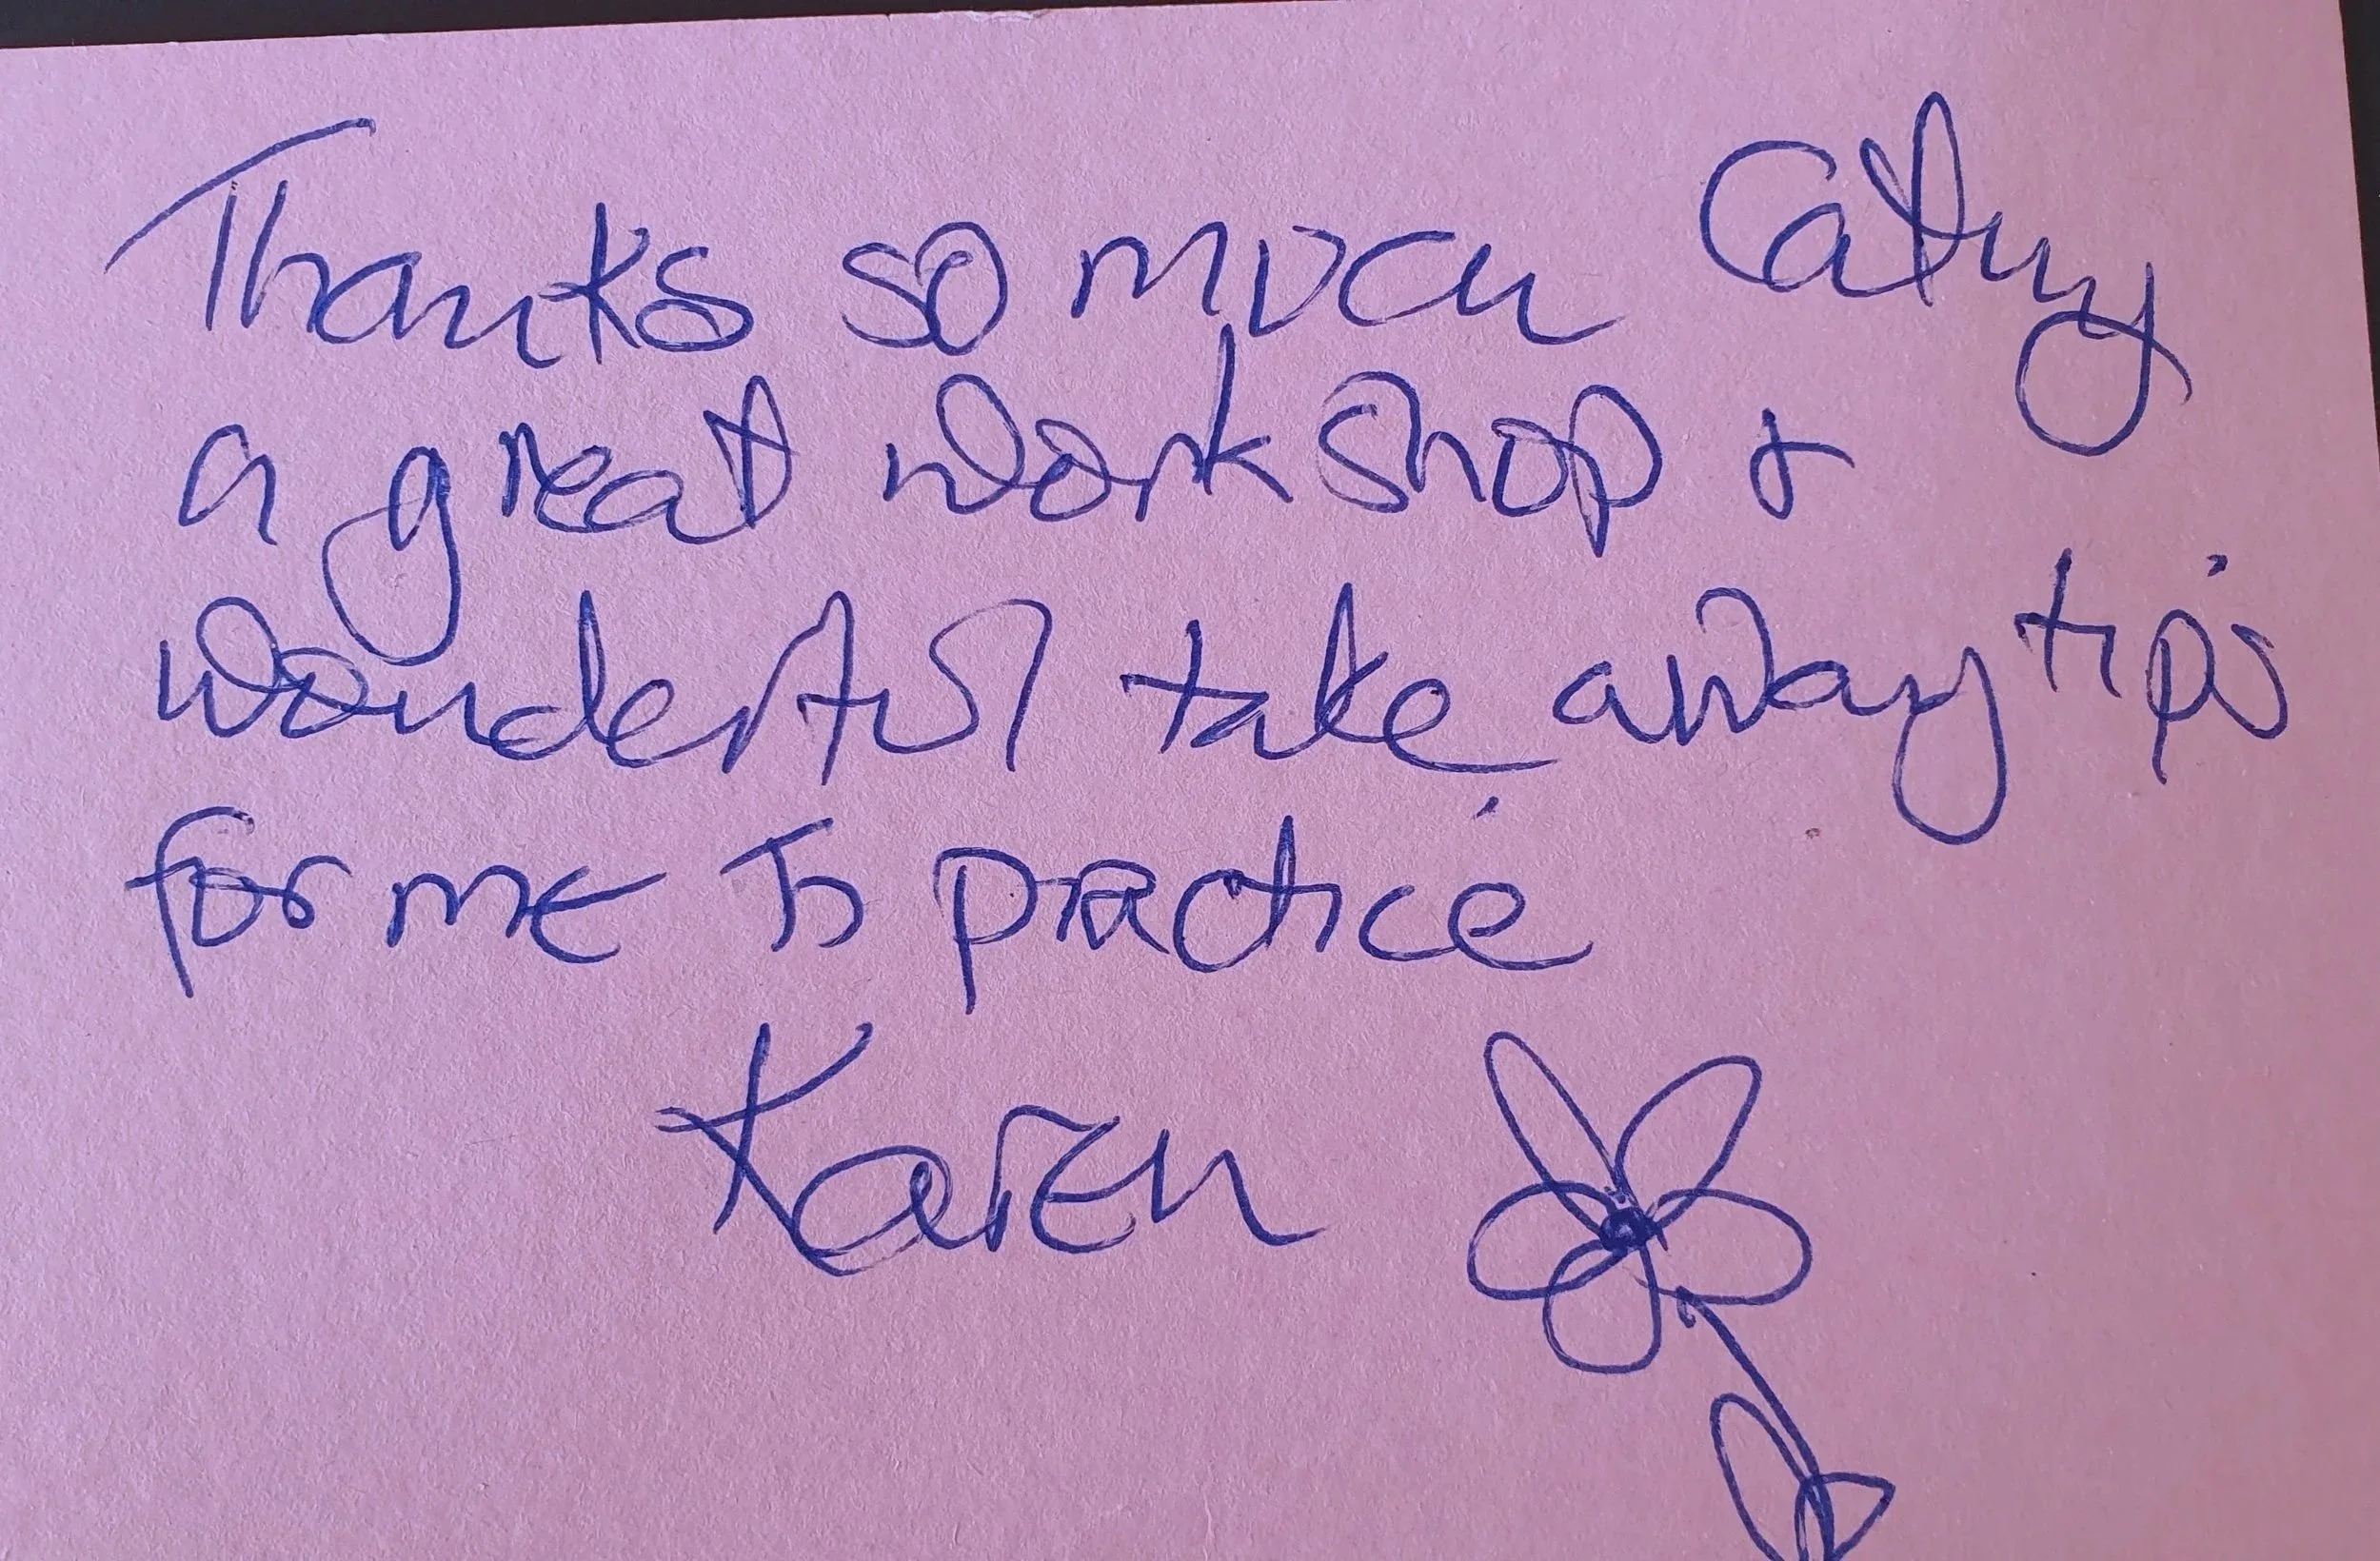 Thanks so much Cathy
a great workshop &
wonderful take away tips
for me to practice
Karen